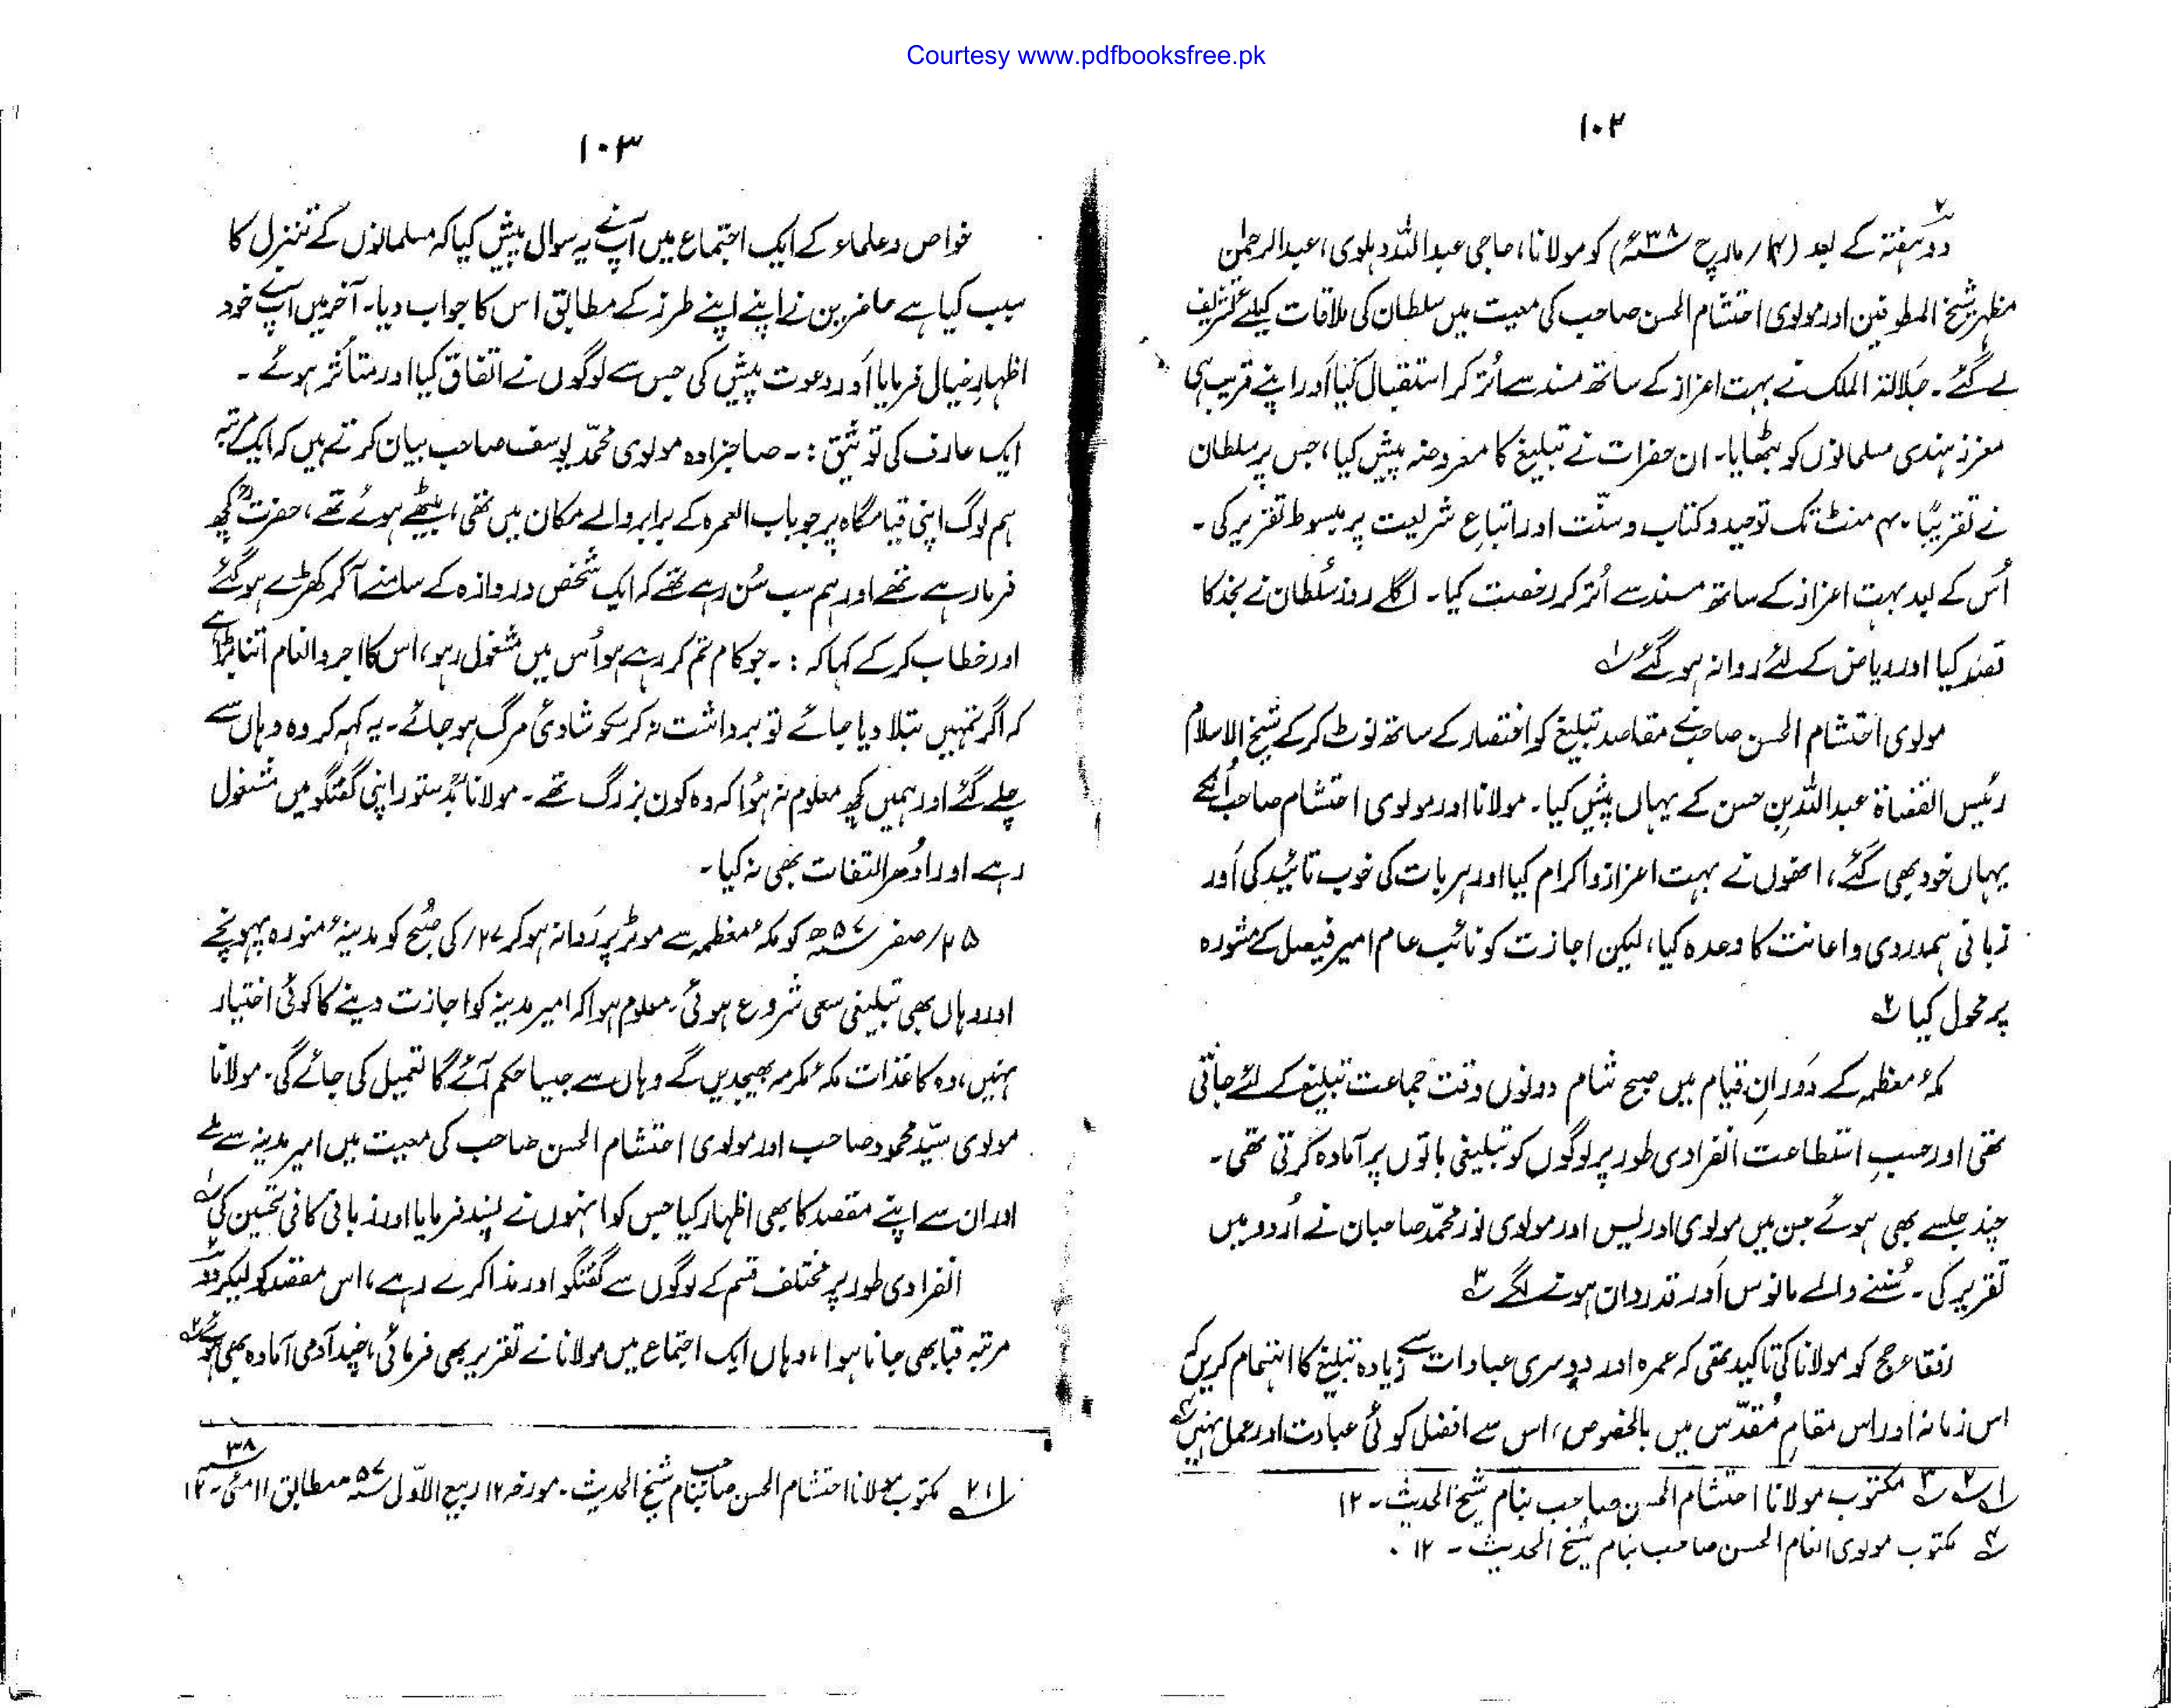 Courtesy www.pdfbooksfree.pk
۱۰۲
دو ہفتہ کے بعد (۱۴/ مارچ ۳۸ء) کو مولانا، حاجی عبداللہ دہلوی، عبدالرحمٰن
مظہر شیخ المطوفین اور مولوی احتشام الحسن صاحب کی معیت میں سلطان کی ملاقات کیلئے تشریف
لے گئے۔ جلالۃ الملک نے بہت اعزاز کے ساتھ مسند سے اُتر کر استقبال کیا اور اپنے قریب ہی
معزز ہندی مسلمانوں کو بٹھایا۔ ان حضرات نے تبلیغ کا معروضہ پیش کیا، جس پر سلطان
نے تقریبًا ۴۰ منٹ تک توحید و کتاب و سنّت اور اتباعِ شریعت پر مبسوط تقریر کی۔
اُس کے بعد بہت اعزاز کے ساتھ مسند سے اُتر کر رخصت کیا۔ اگلے روز سُلطان نے نجد کا
قصد کیا اور ریاض کے لئے روانہ ہو گئے ؂۱
مولوی احتشام الحسن صاحب نے مقاصدِ تبلیغ کو اختصار کے ساتھ نوٹ کر کے شیخ الاسلام
رئیس القضاۃ عبداللہ بن حسن کے یہاں پیش کیا۔ مولانا اور مولوی احتشام صاحب اُنکے
یہاں خود بھی گئے، انھوں نے بہت اعزاز و اکرام کیا اور ہر بات کی خوب تائید کی اَور
زبانی ہمدردی و اعانت کا وعدہ کیا، لیکن اجازت کو نائب عام امیر فیصل کے مشورہ
پر محمول کیا ؂۲
مکۂ معظمہ کے دَورانِ قیام میں صبح شام دونوں وقت جماعت تبلیغ کے لئے جاتی
تھی اور حسبِ استطاعت انفرادی طور پر لوگوں کو تبلیغی باتوں پر آمادہ کرتی تھی۔
چند جلسے بھی ہوئے جن میں مولوی ادریس اور مولوی نور محمّد صاحبان نے اُردو میں
تقریر کی۔ سُننے والے مانوس اَور قدردان ہونے لگے ؂۳
رفقاءِ حج کو مولانا کی تاکید تھی کہ عمرہ اور دوسری عبادات سے زیادہ تبلیغ کا اہتمام کریں کہ
اس زمانہ اور اس مقامِ مُقدّس میں بالخصوص، اس سے افضل کوئی عبادت اور عمل نہیں ؂۴
؂۱ ؂۲ ؂۳ مکتوب مولانا احتشام الحسن صاحب بنام شیخ الحدیث۔ ۱۲
؂۴ مکتوب مولوی انعام الحسن صاحب بنام شیخ الحدیث۔ ۱۲
۱۰۳
خواص و علماء کے ایک اجتماع میں آپ نے یہ سوال پیش کیا کہ مسلمانوں کے تنزل کا
سبب کیا ہے حاضرین نے اپنے اپنے طرز کے مطابق اس کا جواب دیا۔ آخر میں آپ نے خود
اظہارِ خیال فرمایا اَور دعوت پیش کی جس سے لوگوں نے اتفاق کیا اور متأثر ہوئے۔
ایک عارف کی توثیق :۔ صاحبزادہ مولوی محمّد یوسف صاحب بیان کرتے ہیں کہ ایک مرتبہ
ہم لوگ اپنی قیامگاہ پر جو باب العمرہ کے برابر والے مکان میں تھی، بیٹھے ہوئے تھے، حضرتؒ کچھ
فرما رہے تھے اور ہم سب سُن رہے تھے کہ ایک شخص دروازہ کے سامنے آ کر کھڑے ہو گئے
اور خطاب کر کے کہا کہ :۔ جو کام تم کر رہے ہو اُس میں مشغول رہو، اس کا اجر و انعام اتنا بڑا ہے
کہ اگر تمہیں بتلا دیا جائے تو برداشت نہ کر سکو شادئ مرگ ہو جائے۔ یہ کہہ کر وہ وہاں سے
چلے گئے اور ہمیں کچھ معلوم نہ ہُوا کہ وہ کون بزرگ تھے۔ مولاناؒ بدستور اپنی گفتگو میں مشغول
رہے اور اُدھر التفات بھی نہ کیا۔
۲۵/ صفر ۵۷ھ کو مکۂ معظمہ سے موٹر پر رَوانہ ہو کر ۲۷/ کی صُبح کو مدینۂ منورہ پہونچے
اور وہاں بھی تبلیغی سعی شروع ہوئی۔ معلوم ہوا کہ امیر مدینہ کو اجازت دینے کا کوئی اختیار
نہیں، وہ کاغذات مکۂ مکرمہ بھیجدیں گے وہاں سے جیسا حکم آئے گا تعمیل کی جائے گی۔ مولانا
مولوی سیّد محمود صاحب اور مولوی احتشام الحسن صاحب کی معیت میں امیر مدینہ سے ملے
اور ان سے اپنے مقصد کا بھی اظہار کیا جس کو انہوں نے پسند فرمایا اور زبانی کافی تحسین کی ؂۱
انفرادی طور پر مختلف قسم کے لوگوں سے گفتگو اور مذاکرے رہے، اس مقصد کو لیکر دو
مرتبہ قبا بھی جانا ہوا، وہاں ایک اجتماع میں مولانا نے تقریر بھی فرمائی، چند آدمی آمادہ بھی ہوئے ؂۲
؂۱، ۲ مکتوب مولانا احتشام الحسن صاحب بنام شیخ الحدیث۔ مورخہ ۱۲ ربیع الاوّل ۵۷ھ مطابق ۱۱ مئی ۳۸ء۔ ۱۲